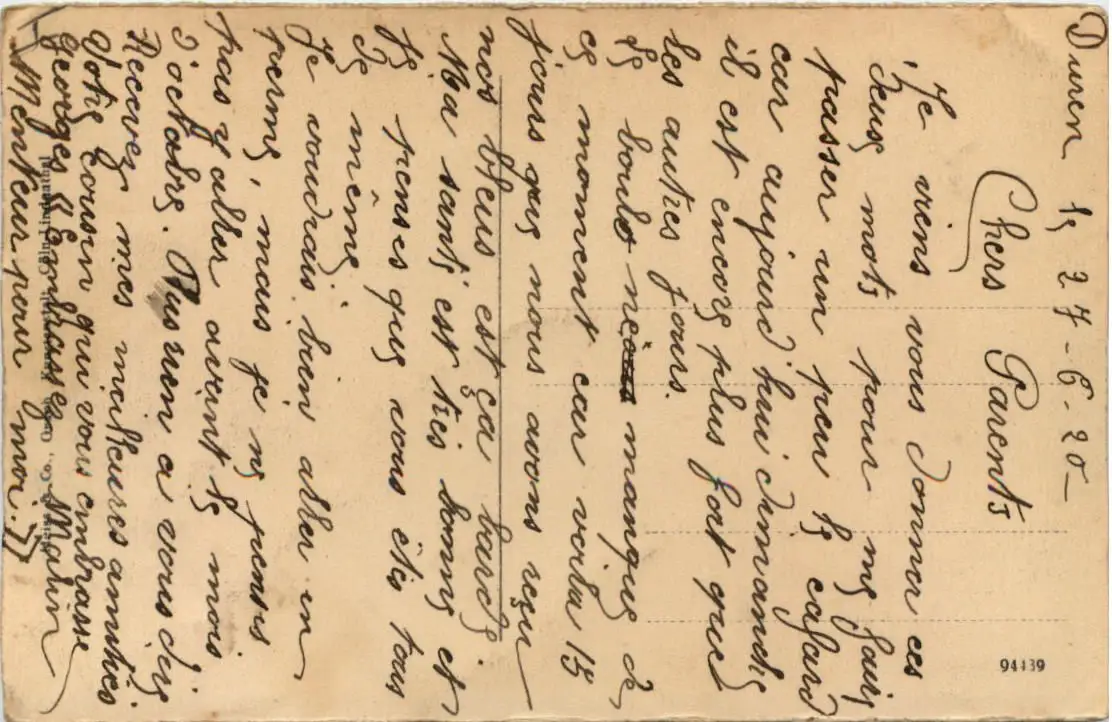 Duren le 27-6-20-
Chers Parents
Je viens vous donner ces
deux mots pour me faire
passer un peu le cafard
car aujourd'hui dimanche
il est encore plus fort que
les autres jours.
Le boulo ne manque de
ce moment car voila 15
jours que nous avons reçu
nos bleus est ça barde.
Ma santé est très bonne et
je pense que vous êtes tous
de même
Je voudrais bien aller en
perme, mais je ne pense
pas y aller avant le mois
d'octobre. Plus rien a vous dire
Recevez mes meilleures amitiés
Votre cousin qui vous embrasse
Georges Mahin
(( Embrasser
Menteur pour moi ))
94439